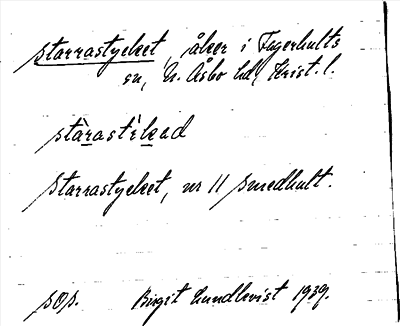 starrastycket, åker i Fagerhults
sn, N. Åsbo hd, Krist. l.
stàrastʹikəd
Starrastycket, nr 11 Smedhult.
sOp. Birgit Lundkvist 1939.